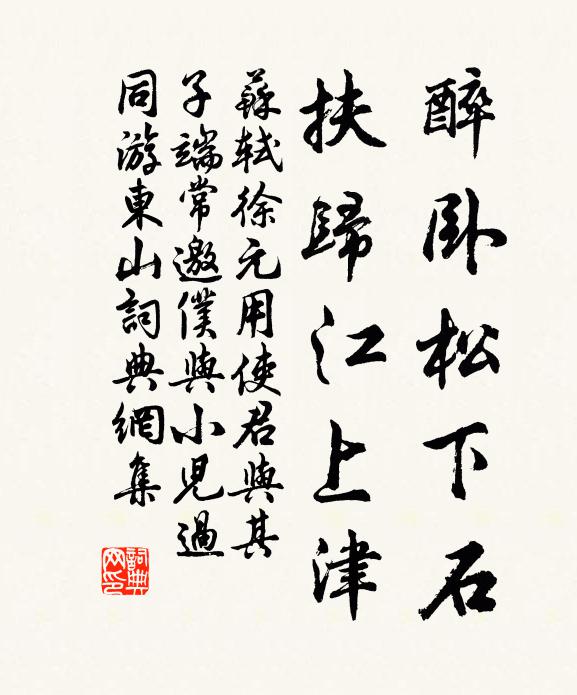 醉卧松下石
扶歸江上津
蘇軾徐元用使君與其
子端常邀僕與小兒過
同游東山詞典網集
詞典網印